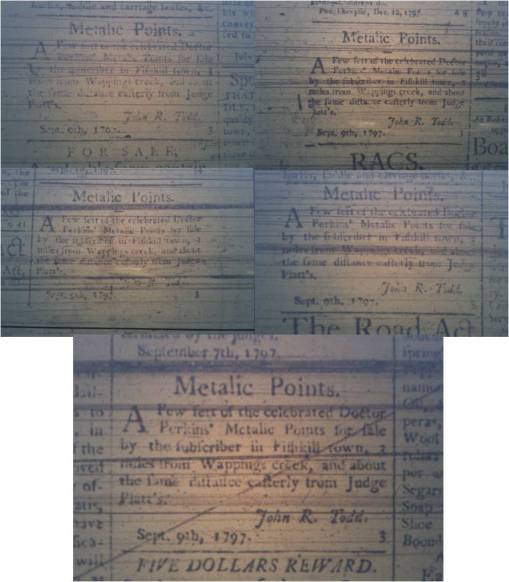 Metalic Points.
A Few sett of the celebrated Doctor
Perkins' Metalic Points for sale
by the subscriber in Fishkill town, 2
miles from Wappings creek,
the same distance easterly from Judge
Platt's.
John R. Todd.
Sept. 9th, 1797. 3
FOR SALE,
Poughkeepsie, Dec. 12, 1796
Metalic Points.
A Few sett of the celebrated Doctor
Perkins' Metalic Points for sale
by the subscriber in Fishkill town, 2
miles from Wappings creek, and about
the same distance easterly from Judge
Platt's.
John R. Todd.
Sept. 9th, 1797. 3
RACS.
Metalic Points.
A Few sett of the celebrated Doctor
Perkins' Metalic Points for sale
by the subscriber in Fishkill town, 2
miles from Wappings creek, and about
the same distance easterly from Judge
Platt's.
John R. Todd.
Sept. 9th, 1797. 3
Metalic Points.
A Few sett of the celebrated Doctor
Perkins' Metalic Points for sale
by the subscriber in Fishkill town, 2
miles from Wappings creek, and about
the same distance easterly from Judge
Platt's.
John R. Todd.
Sept. 9th, 1797. 3
The Road Act
September 7th, 1797
Metalic Points.
A Few sett of the celebrated Doctor
Perkins' Metalic Points for sale
by the subscriber in Fishkill town, 2
miles from Wappings creek, and about
the same distance easterly from Judge
Platt's.
John R. Todd.
Sept. 9th, 1797. 3
FIVE DOLLARS REWARD.